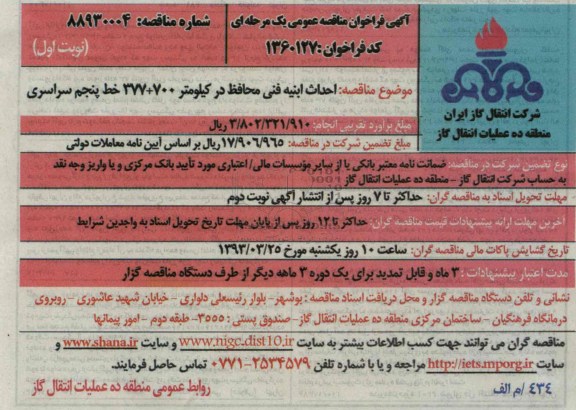 آگهی فراخوان مناقصه عمومی یک مرحله ای
کد فراخوان: ۱۳۶۰۱۲۷
شماره مناقصه: ۸۸۹۳۰۰۰۴
(نوبت اول)
شرکت انتقال گاز ایران
منطقه ده عملیات انتقال گاز
موضوع مناقصه: احداث ابنیه فنی محافظ در کیلومتر ۷۰۰+۳۷۷ خط پنجم سراسری
مبلغ برآورد تقریبی انجام: ۳/۸۰۲/۳۲۱/۹۱۰ ریال
مبلغ تضمین شرکت در مناقصه: ۱۷/۹۰۶/۹۶۵ ریال بر اساس آیین نامه معاملات دولتی
نوع تضمین شرکت در مناقصه: ضمانت نامه معتبر بانکی یا از سایر مؤسسات مالی/ اعتباری مورد تأیید بانک مرکزی و یا واریز وجه نقد
به حساب شرکت انتقال گاز - منطقه ده عملیات انتقال گاز
مهلت تحویل اسناد به مناقصه گران: حداکثر تا ۷ روز پس از انتشار آگهی نوبت دوم
آخرین مهلت ارائه پیشنهادات قیمت مناقصه گران: حداکثر تا ۱۲ روز پس از پایان مهلت تاریخ تحویل اسناد به واجدین شرایط
تاریخ گشایش پاکات مالی مناقصه گران: ساعت ۱۰ روز یکشنبه مورخ ۱۳۹۳/۰۳/۲۵
مدت اعتبار پیشنهادات: ۳ ماه و قابل تمدید برای یک دوره ۳ ماهه دیگر از طرف دستگاه مناقصه گزار
نشانی و تلفن دستگاه مناقصه گزار و محل دریافت اسناد مناقصه: بوشهر- بلوار رئیسعلی دلواری - خیابان شهید عاشوری - روبروی
درمانگاه فرهنگیان - ساختمان مرکزی منطقه ده عملیات انتقال گاز- صندوق پستی: ۳۵۵۵- طبقه دوم - امور پیمانها
مناقصه گران می توانند جهت کسب اطلاعات بیشتر به سایت www.nigc.dist10.ir و سایت www.shana.ir و
سایت http://iets.mporg.ir مراجعه و یا با شماره تلفن ۲۵۳۴۵۷۹-۰۷۷۱ تماس حاصل فرمایند.
۴۳۴/م الف
روابط عمومی منطقه ده عملیات انتقال گاز